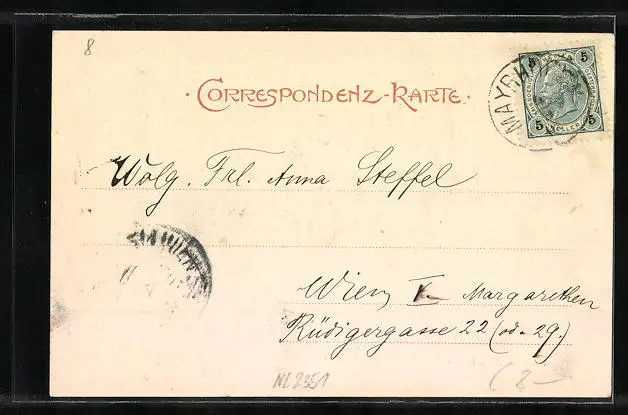 8
· CORRESPONDENZ-KARTE ·
MAYRH
5 5
5 HELLER 5
Wolg. Frl. Anna Steffel
WIEN
Wien, V. Margarethen
Rüdigergasse 22 (od. 29.)
NL2351
(8-